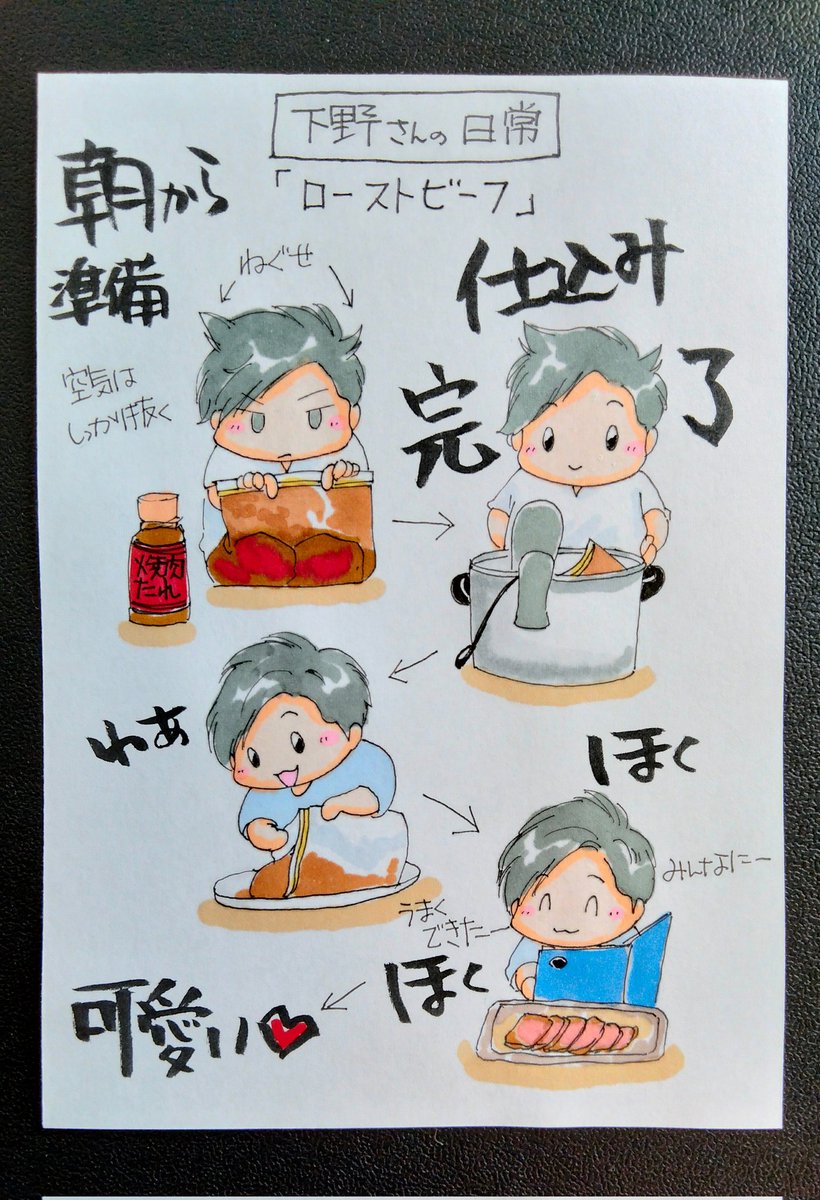 下野さんの日常
「ローストビーフ」
朝から
準備
ねぐせ
空気は
しっかり抜く
焼肉
たれ
仕込み
完了
わぁ
ほく
ほく
みんなにー
うまく
できたー
可愛い